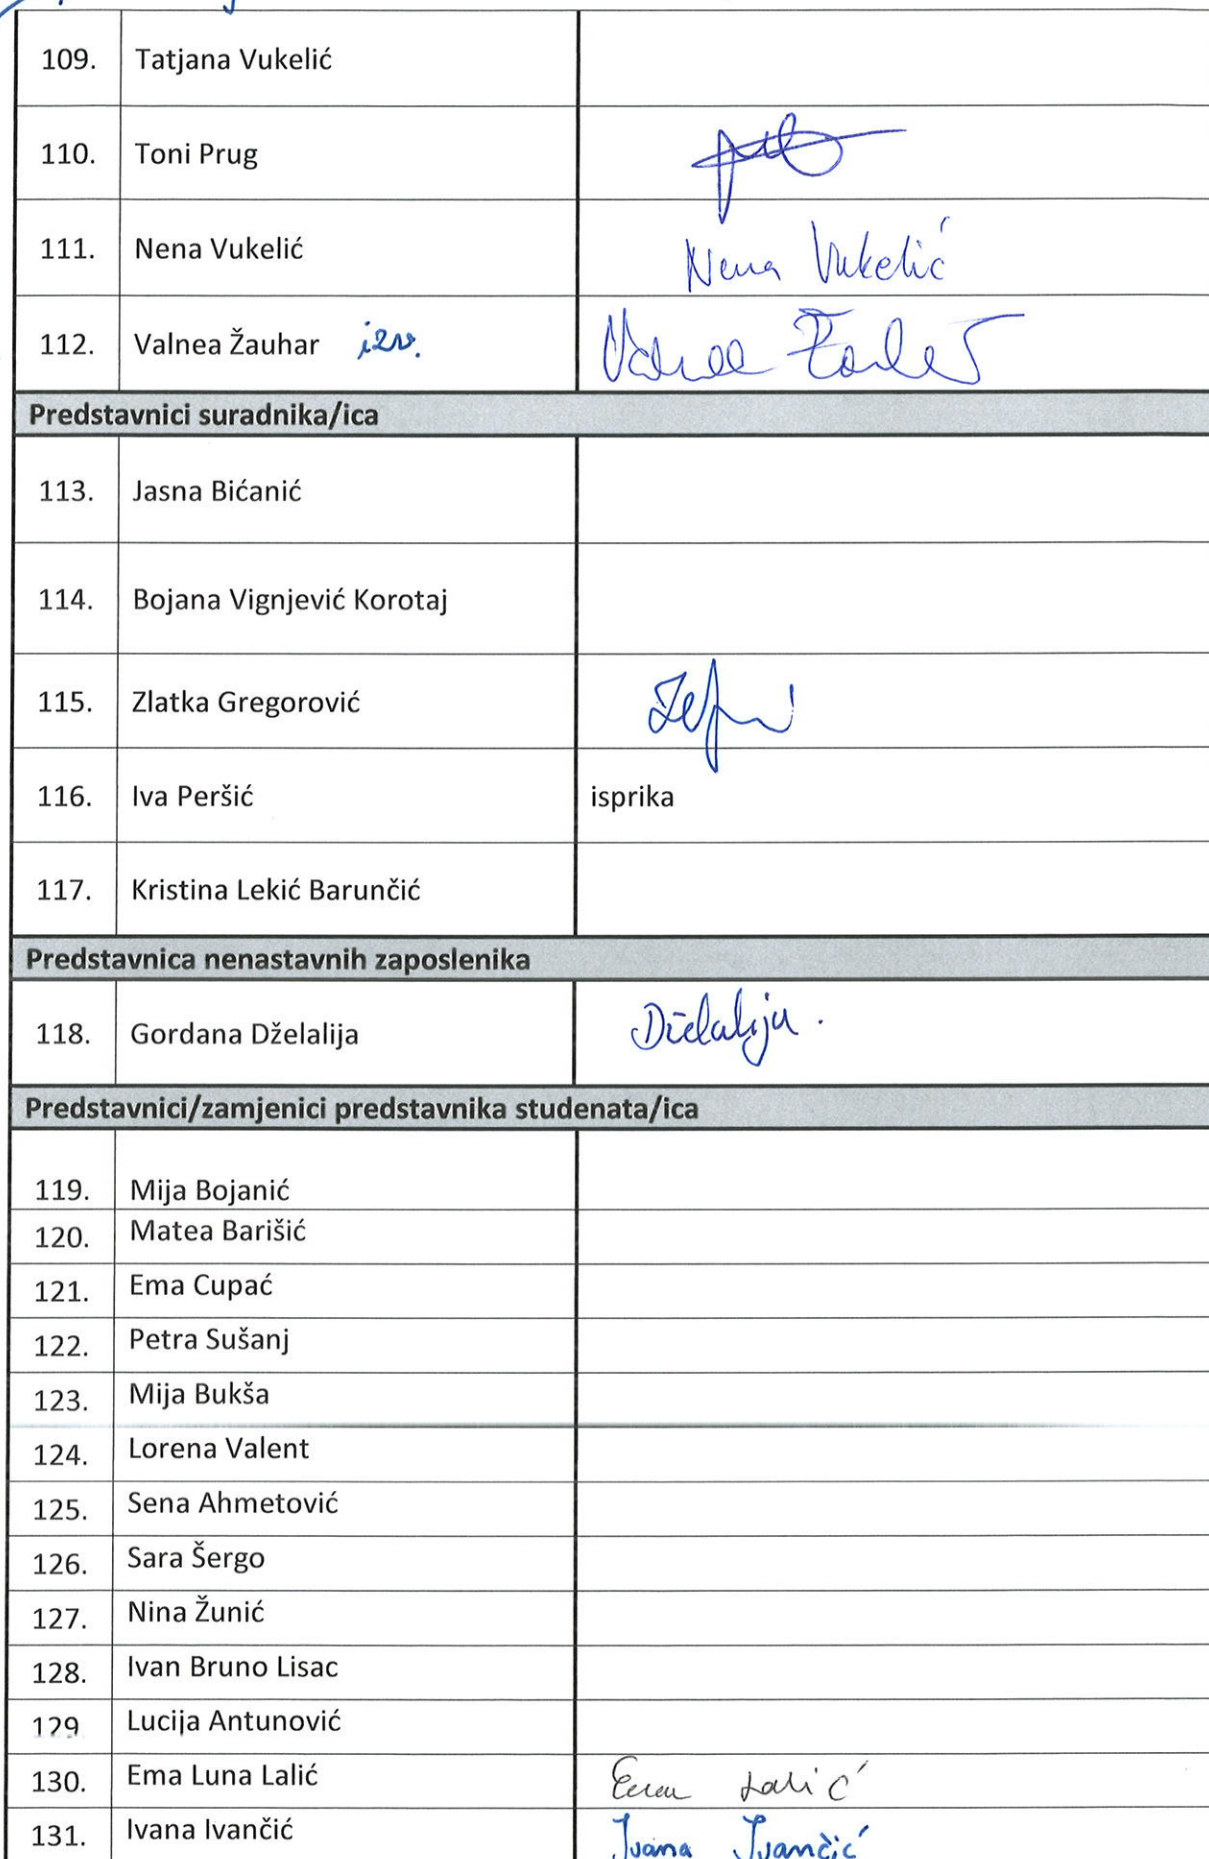 109. Tatjana Vukelić
110. Toni Prug
111. Nena Vukelić Nena Vukelić
112. Valnea Žauhar izv. Valnea Žauhar
Predstavnici suradnika/ica
113. Jasna Bićanić
114. Bojana Vignjević Korotaj
115. Zlatka Gregorović
116. Iva Peršić isprika
117. Kristina Lekić Barunčić
Predstavnica nenastavnih zaposlenika
118. Gordana Dželalija Dželalija.
Predstavnici/zamjenici predstavnika studenata/ica
119. Mija Bojanić
120. Matea Barišić
121. Ema Cupać
122. Petra Sušanj
123. Mija Bukša
124. Lorena Valent
125. Sena Ahmetović
126. Sara Šergo
127. Nina Žunić
128. Ivan Bruno Lisac
129 Lucija Antunović
130. Ema Luna Lalić Ema Lalić
131. Ivana Ivančić Ivana Ivančić